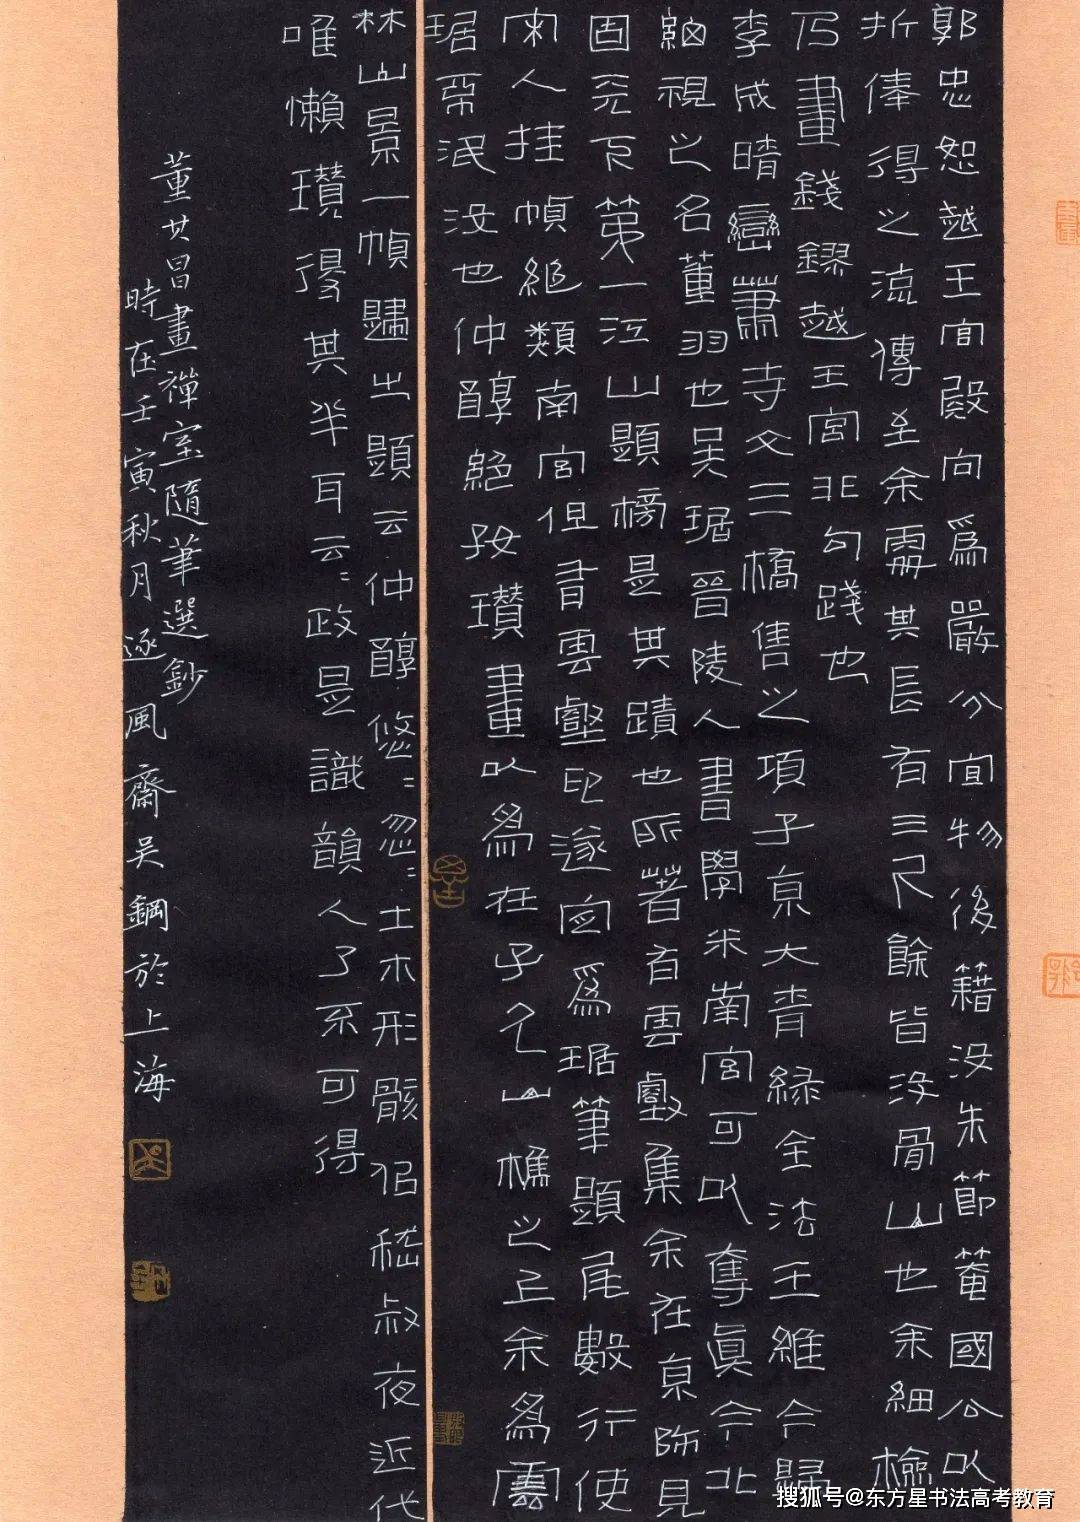 郭忠恕越王宮殿向爲嚴分宜物後籍没朱節菴國公以
折俸得之流傳至余需其長有三尺餘皆没骨山也余細檢
乃畫錢鏐越王宮非句踐也
李成晴巒蕭寺文三橋售之項子京大青緑全法王維今歸
細視之名董羽也吴琚晉陵人書學米南宮可以奪眞今北
固天下第一江山題榜是其蹟也所著有雲壑集余在京師見
宋人挂幀絶類南宮但書雲壑印遂定爲琚筆題尾數行使
琚不泯没也仲醇絶好瓚畫以爲在子久山樵之上余爲雲
林山景一幀歸之題云仲醇悠〻忽〻土木形骸似嵇叔夜近代
唯懶瓚得其半耳云〻政是識韻人了不可得
董其昌畫禪室隨筆選鈔
時在壬寅秋月逐風齋吴鋼於上海
搜狐号@东方星书法高考教育